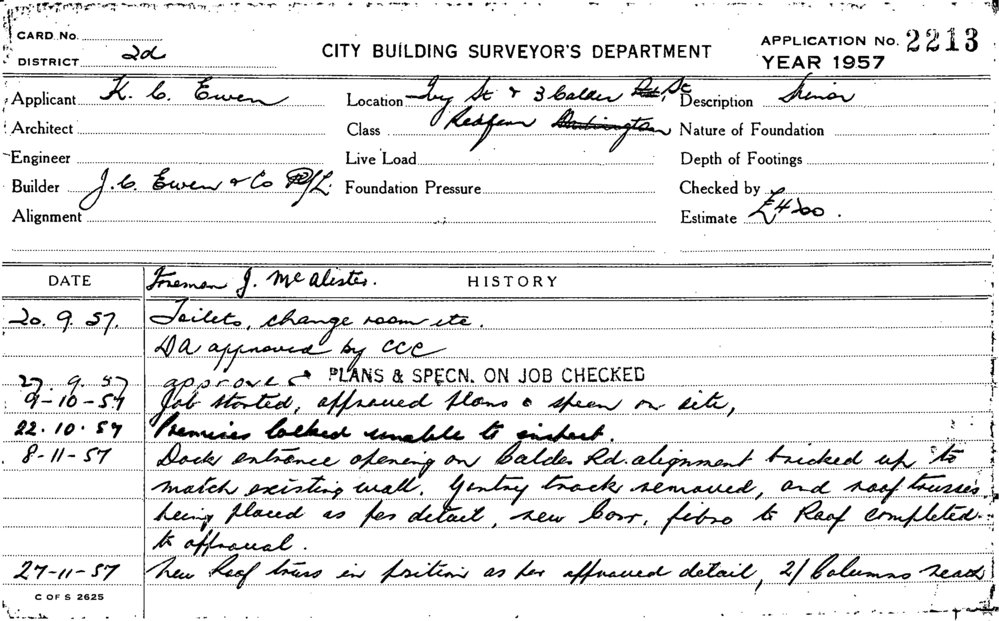 CARD No.
DISTRICT 2d
CITY BUILDING SURVEYOR'S DEPARTMENT
APPLICATION No. 2213
YEAR 1957
Applicant K. C. Ewen
Location Ivy St & 3 Calder Rd, St
Description Minor
Architect
Class Redfern Darlington
Nature of Foundation
Engineer
Live Load
Depth of Footings
Builder J. C. Ewen & Co P/L.
Foundation Pressure
Checked by
Alignment
Estimate £400.
DATE
Foreman J. McAlister.
HISTORY
20. 9. 57. Toilets, change room etc.
DA approved by CCC
27. 9. 57 approved PLANS & SPECN. ON JOB CHECKED
9-10-57 Job started, approved plans & specn on site,
22.10.57 Premises locked unable to inspect.
8-11-57 Dock entrance opening on Calder Rd. alignment bricked up to
match existing wall. Gentry track removed, and roof trusses
being placed as per detail, new Corr, fibro to Roof completed
to approval.
27-11-57 New Roof truss in position as per approved detail, 2/ Columns
C OF S 2625